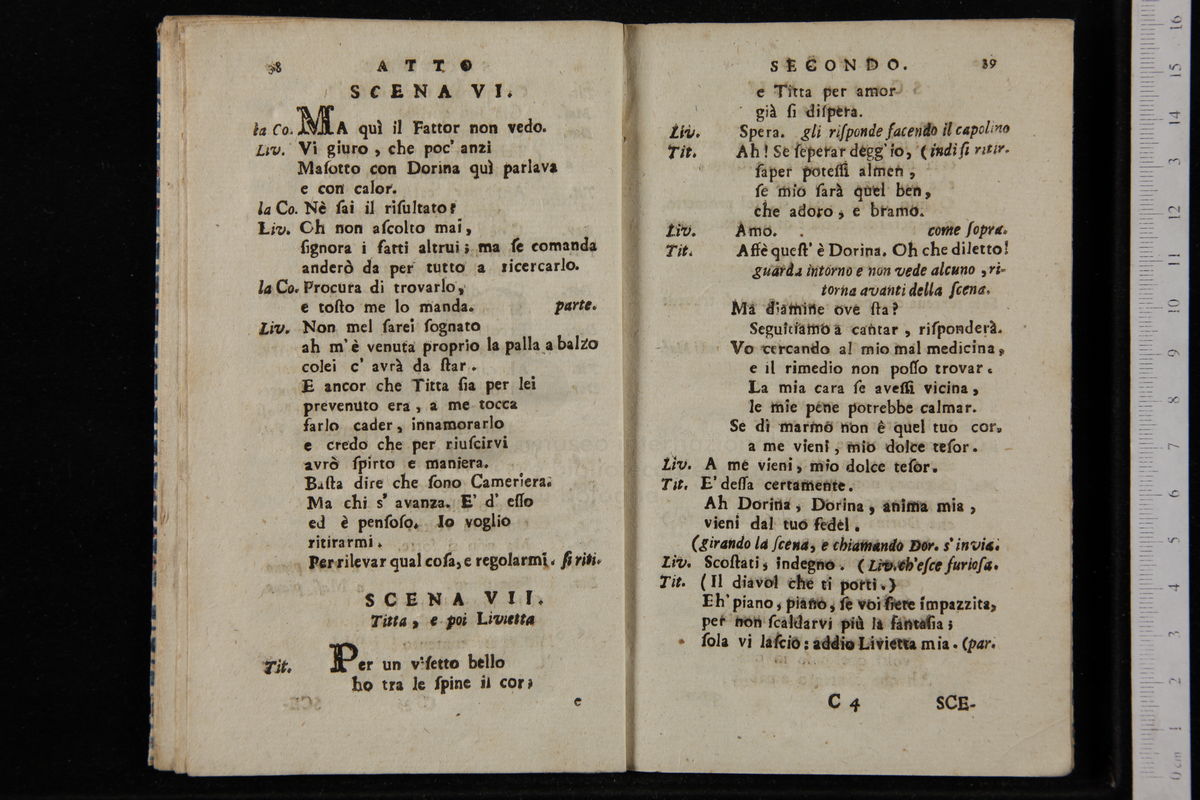 38 ATTO
SCENA VI.
la Co. MA quì il Fattor non vedo.
Liv. Vi giuro, che poc' anzi
Maſotto con Dorina quì parlava
e con calor.
la Co. Nè ſai il riſultato?
Liv. Oh non aſcolto mai,
ſignora i fatti altrui; ma ſe comanda
anderò da per tutto a ricercarlo.
la Co. Procura di trovarlo,
e toſto me lo manda. parte.
Liv. Non mel ſarei ſognato
ah m'è venuta proprio la palla a balzo
colei c' avrà da ſtar.
E ancor che Titta ſia per lei
prevenuto era, a me tocca
farlo cader, innamorarlo
e credo che per riuſcirvi
avrò ſpirto e maniera.
Baſta dire che ſono Cameriera.
Ma chi s' avanza. E' d' eſſo
ed è penſoſo. Io voglio
ritirarmi.
Per rilevar qual coſa, e regolarmi. ſi riti.
SCENA VII.
Titta, e poi Livietta
Tit. Per un viſetto bello
ho tra le ſpine il cor;
e
SCE-
SECONDO. 39
e Titta per amor
già ſi diſpera.
Liv. Spera. gli riſponde facendo il capolino
Tit. Ah! Se ſeperar degg'io, (indi ſi ritir.
ſaper poteſſi almen,
ſe mio ſarà quel ben,
che adoro, e bramo.
Liv. Amo. come ſopra.
Tit. Affè queſt' è Dorina. Oh che diletto!
guarda intorno e non vede alcuno, ri-
torna avanti della ſcena.
Ma diamine ove ſta?
Seguitiamo a cantar, riſponderà.
Vo cercando al mio mal medicina,
e il rimedio non poſſo trovar.
La mia cara ſe aveſſi vicina,
le mie pene potrebbe calmar.
Se di marmo non ê quel tuo cor,
a me vieni, mio dolce teſor.
Liv. A me vieni, mio dolce teſor.
Tit. E' deſſa certamente.
Ah Dorina, Dorina, anima mia,
vieni dal tuo fedel.
(girando la ſcena, e chiamando Dor. s'invia.
Liv. Scoſtati, indegno. (Liv. ch'eſce furioſa.
Tit. (Il diavol che ti porti.)
Eh' piano, piano, ſe voi ſiete impazzita,
per non ſcaldarvi più la fantaſia;
ſola vi laſcio: addio Livietta mia. (par.
C 4 SCE-
16
15
14
13
12
11
10
9
8
7
6
5
4
3
2
1
0 cm